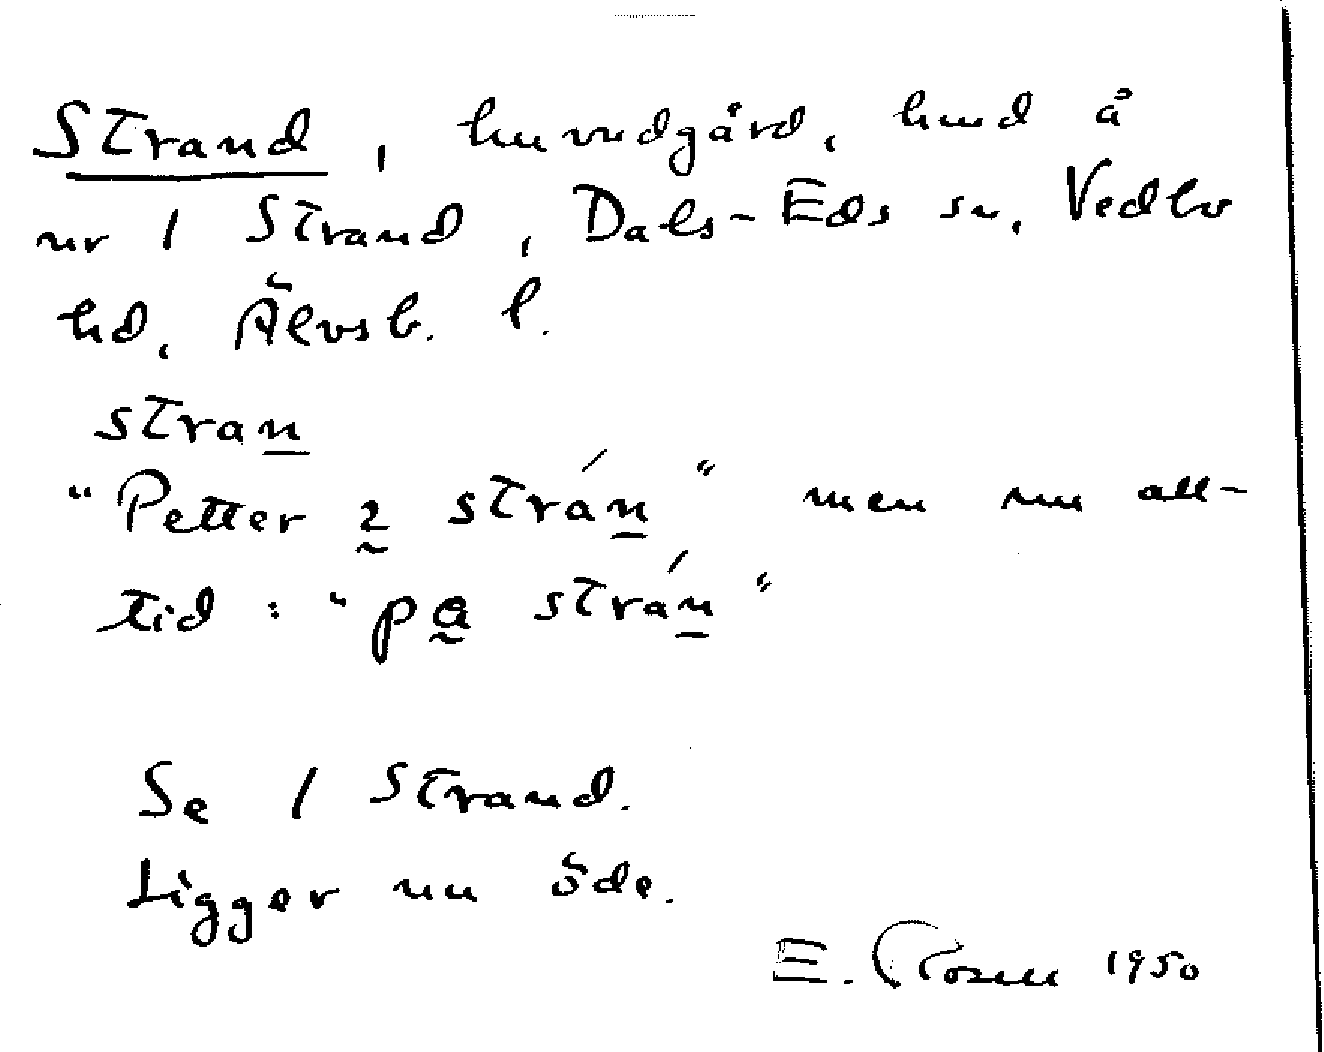 Strand, huvudgård, hmd å
nr 1 Strand, Dals-Eds sn, Vedbo
hd, Älvsb. l.
stran
"Petter 2 strán" men nu all-
tid: "pa strán"
Se 1 Strand.
Ligger nu öde.
E. Rosell 1950